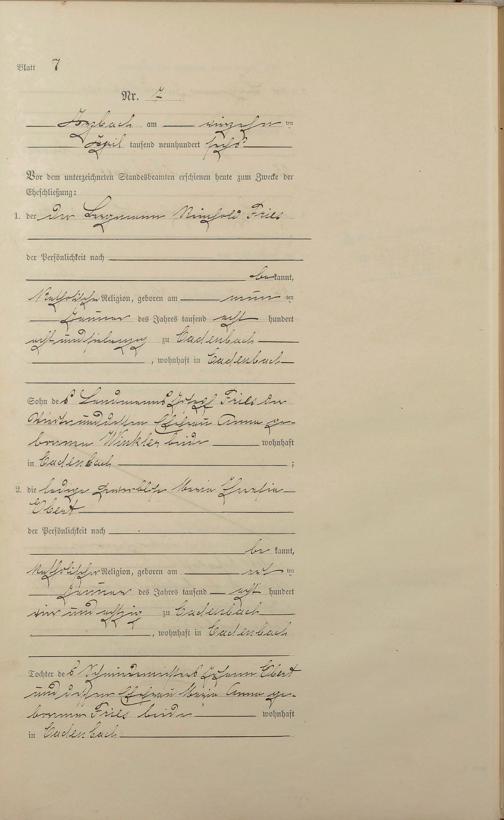 Blatt 7
Nr. 7
Arzbach am
April tausend neunhundert sechs
Vor dem unterzeichneten Standesbeamten erschienen heute zum Zwecke der
Eheschließung:
1. der der Bergmann Reinhold Fries
der Persönlichkeit nach
bekannt,
katholischer Religion, geboren am neun ten
Januar des Jahres tausend acht hundert
acht und siebenzig zu Cadenbach
, wohnhaft in Cadenbach
Sohn des Landmanns Josef Fries der
und dessen Ehefrau Anna ge-
borenen Winkler beide wohnhaft
in Cadenbach ;
2. die ledige gewerblose Maria
Ebert
der Persönlichkeit nach
be kannt,
katholischer Religion, geboren am ten
Januar des Jahres tausend acht hundert
vier und achtzig zu Cadenbach
, wohnhaft in Cadenbach
Tochter des Schreinermeisters Johann Ebert
und dessen Ehefrau Maria Anna ge-
borenen Fries beide wohnhaft
in Cadenbach